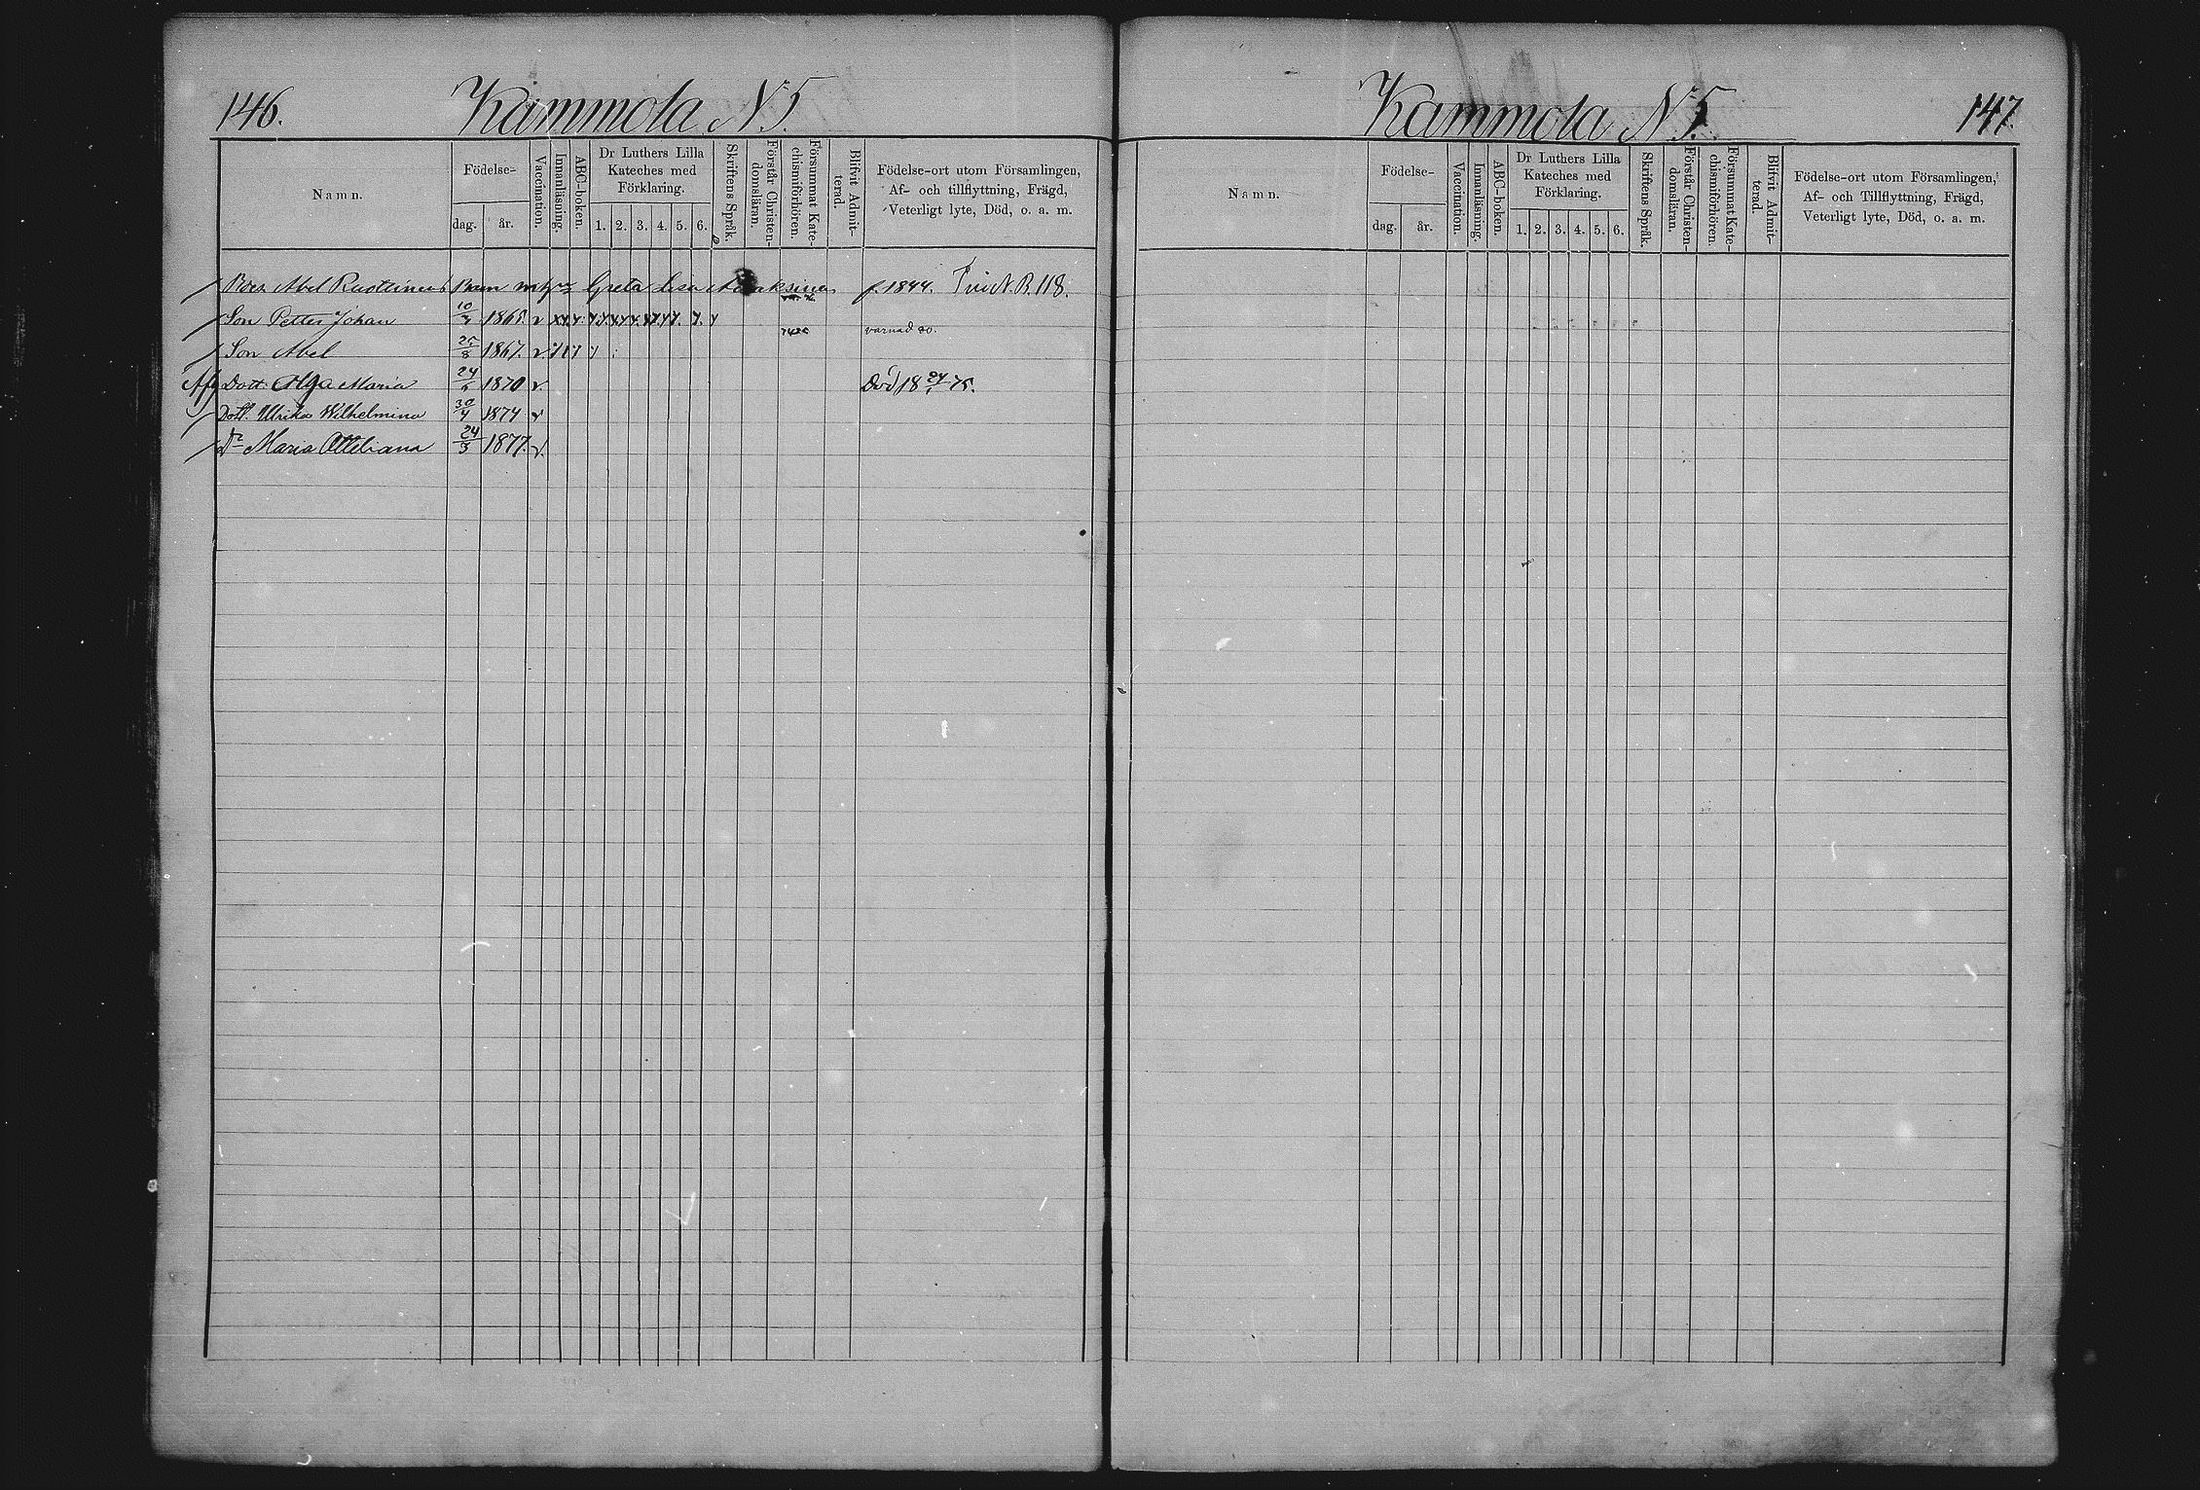 146. Kammola N:5.
Namn.
Födelse-
dag. år.
Vaccination.
Innanläsning.
ABC-boken.
Dr Luthers Lilla
Kateches med
Förklaring.
1. 2. 3. 4. 5. 6.
Skriftens Språk.
Förstår Christen-
domsläran.
Försummat Kate-
chismiförhören.
Blifvit Admit-
terad.
Födelse-ort utom Församlingen,
Af- och tillflyttning, Frägd,
Veterligt lyte, Död, o. a. m.
Abel Barn Greta Lisa f. 1844. N. B. 118.
Son Petter Johan 10/3 1865. v
varnad 80.
Son Abel 25/8 1867. v
Dott. Olga Maria 24/5 1870 v. Död 18 24/1 75.
Dott. Ulrika Wilhelmina 30/4 1874 v
Dr Maria Ottiliana 24/3 1877. v.
Kammola N:5. 147.
Namn.
Födelse-
dag. år.
Vaccination.
Innanläsning.
ABC-boken.
Dr Luthers Lilla
Kateches med
Förklaring.
1. 2. 3. 4. 5. 6.
Skriftens Språk.
Förstår Christen-
domsläran.
Försummat Kate-
chismiförhören.
Blifvit Admit-
terad.
Födelse-ort utom Församlingen,
Af- och Tillflyttning, Frägd,
Veterligt lyte, Död, o. a. m.